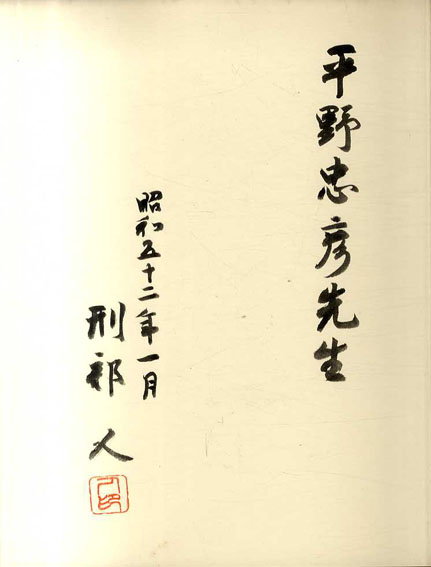 平野忠彦先生
昭和五十二年一月
刑部 人